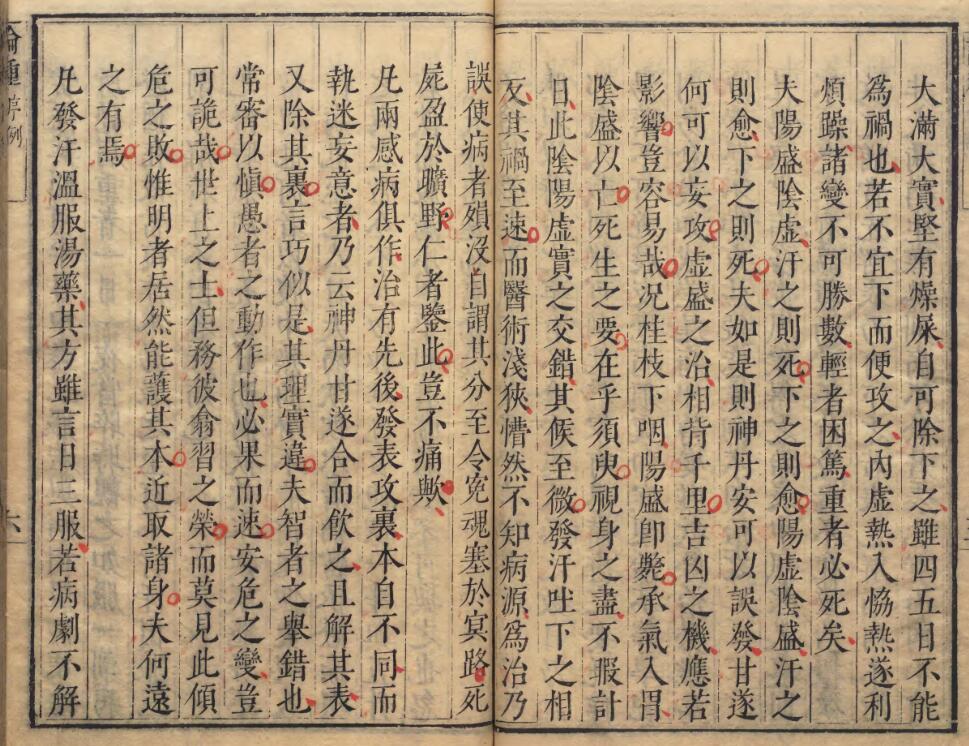 大滿大實堅有燥屎自可除下之雖四五日不能
爲禍也若不宜下而便攻之內虛熱入恊熱遂利
煩躁諸變不可勝數輕者困篤重者必死矣
夫陽盛陰虛汗之則死下之則愈陽虛陰盛汗之
則愈下之則死夫如是則神丹安可以誤發甘遂
何可以妄攻虛盛之治相背千里吉凶之機應若
影響豈容易哉况桂枝下咽陽盛卽斃承氣入胃
陰盛以亡死生之要在乎須臾視身之盡不暇計
日此陰陽虛實之交錯其候至微發汗吐下之相
反其禍至速而醫術淺狹懵然不知病源爲治乃
誤使病者殞沒自謂其分至令寃魂塞於冥路死
屍盈於曠野仁者鑒此豈不痛歟
凡兩感病俱作治有先後發表攻裏本自不同而
執迷妄意者乃云神丹甘遂合而飮之且解其表
又除其裏言巧似是其理實違夫智者之舉錯也
常審以愼愚者之動作也必果而速安危之變豈
可詭哉世上之士但務彼翕習之榮而莫見此傾
危之敗惟明者居然能護其本近取諸身夫何遠
之有焉
凡發汗溫服湯藥其方雖言日三服若病劇不解
論 序例
六